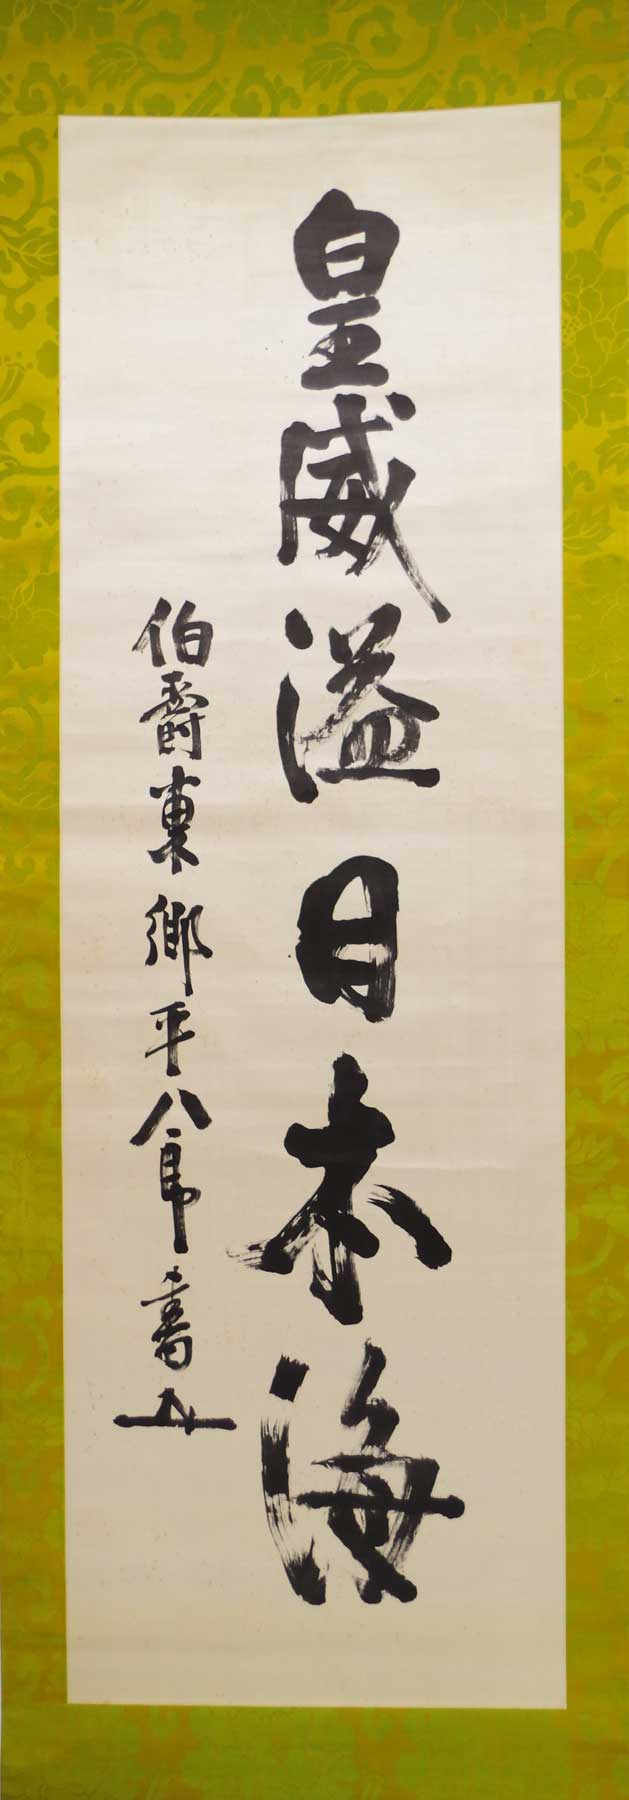 皇威溢日本海
伯爵東郷平八郎書